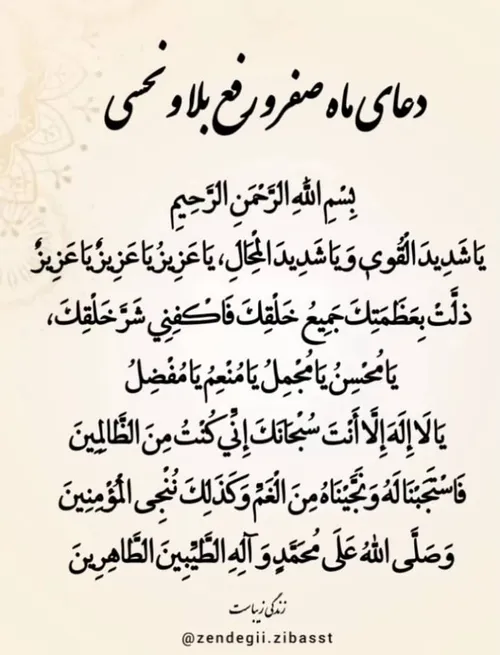 دعای ماه صفر و رفع بلا و نحسی
بِسْمِ اللهِ الرَّحْمَنِ الرَّحِيمِ
يَا شَدِيدَ الْقُوىٰ وَ يَا شَدِيدَ الْمِحَالِ، يَا عَزِيزُ يَا عَزِيزُ يَا عَزِيزُ
ذَلَّتْ بِعَظَمَتِكَ جَمِيعُ خَلْقِكَ فَاكْفِنِي شَرَّ خَلْقِكَ،
يَا مُحْسِنُ يَا مُجْمِلُ يَا مُنْعِمُ يَا مُفْضِلُ
يَا لَا إِلَهَ إِلَّا أَنْتَ سُبْحَانَكَ إِنِّي كُنْتُ مِنَ الظَّالِمِينَ
فَاسْتَجَبْنَا لَهُ وَ نَجَّيْنَاهُ مِنَ الْغَمِّ وَ كَذَلِكَ نُنْجِي الْمُؤْمِنِينَ
وَ صَلَّى اللهُ عَلَى مُحَمَّدٍ وَ آلِهِ الطَّيِّبِينَ الطَّاهِرِينَ
زندگی زیباست
@zendegii.zibasst